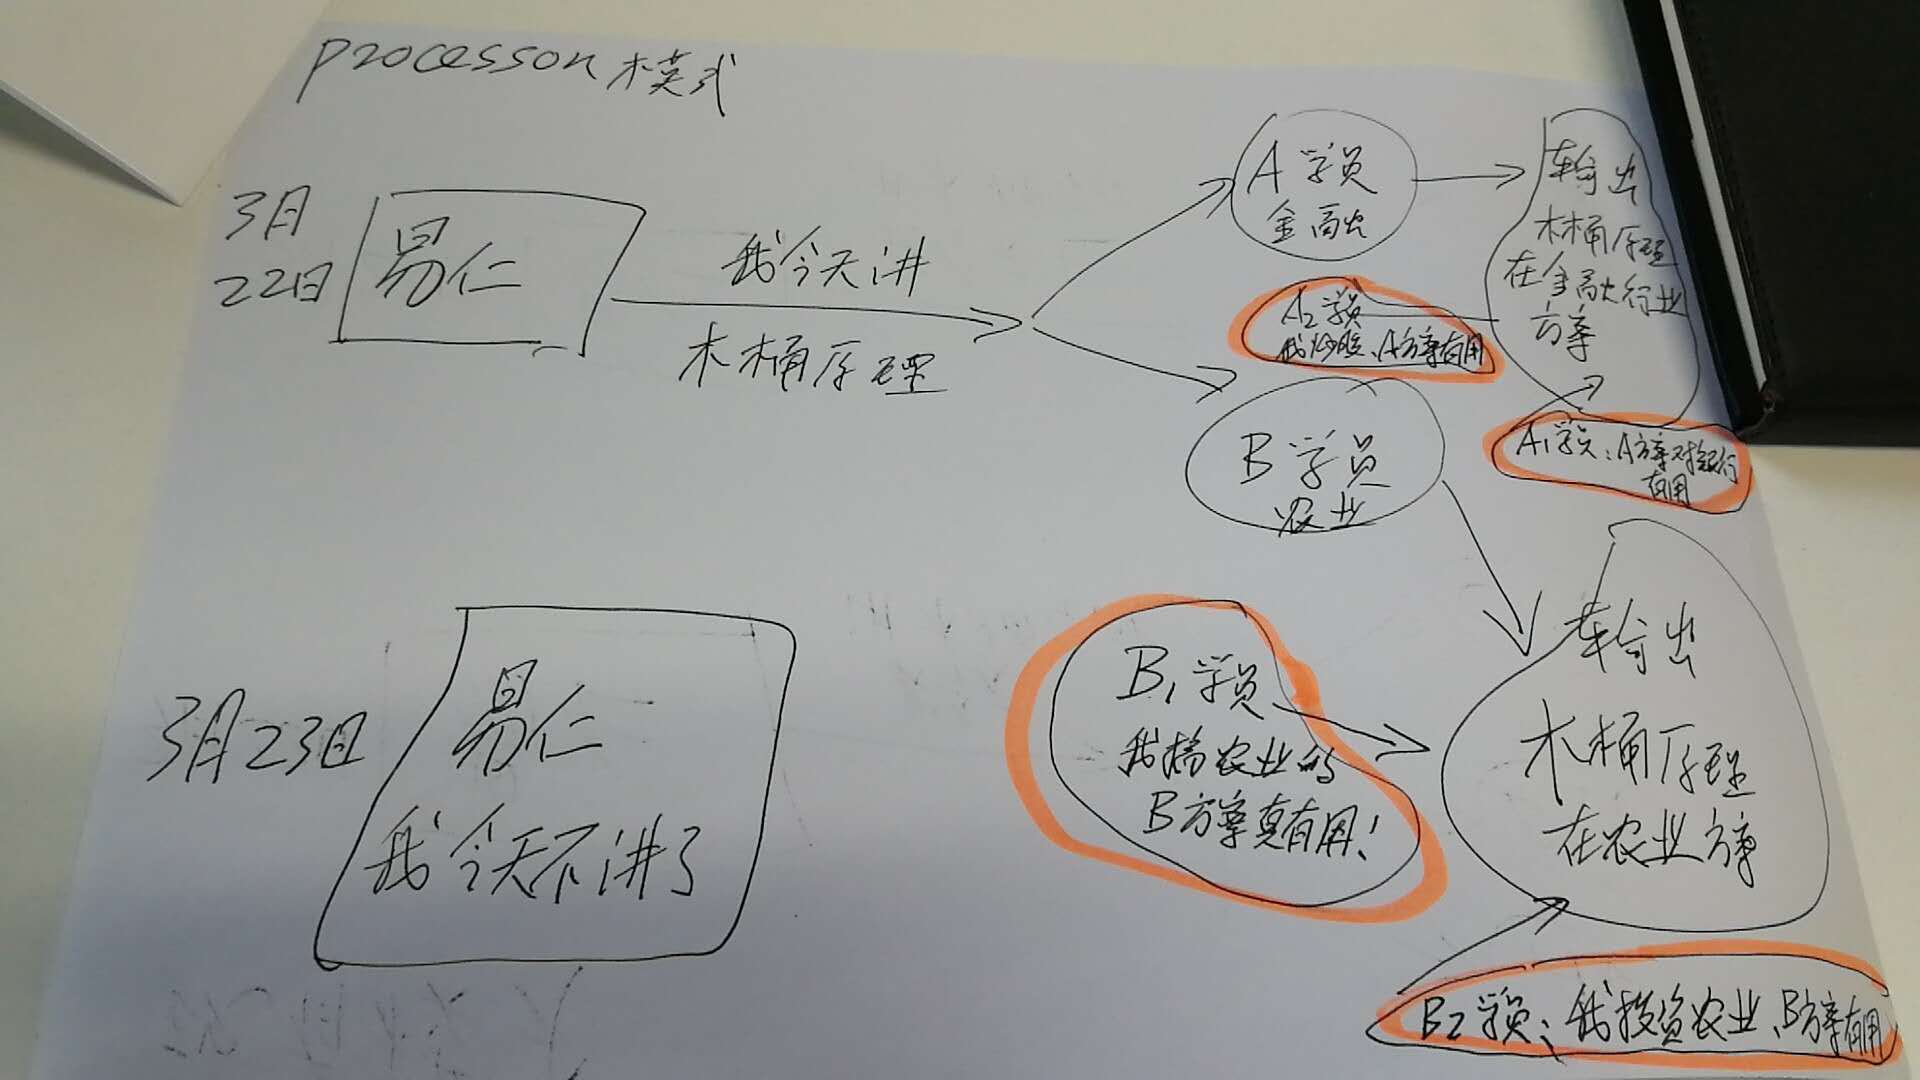 processon模式
3月
22日
易仁
我今天讲
木桶原理
A学员
金融
输出
木桶原理
在金融行业
方案
A2学员
我炒股、A方案有用
A1学员：A方案对银行
有用
B学员
农业
3月23日
易仁
我今天不讲了
B1学员
我搞农业的
B方案真有用！
输出
木桶原理
在农业方案
B2学员：我投资农业、B方案有用